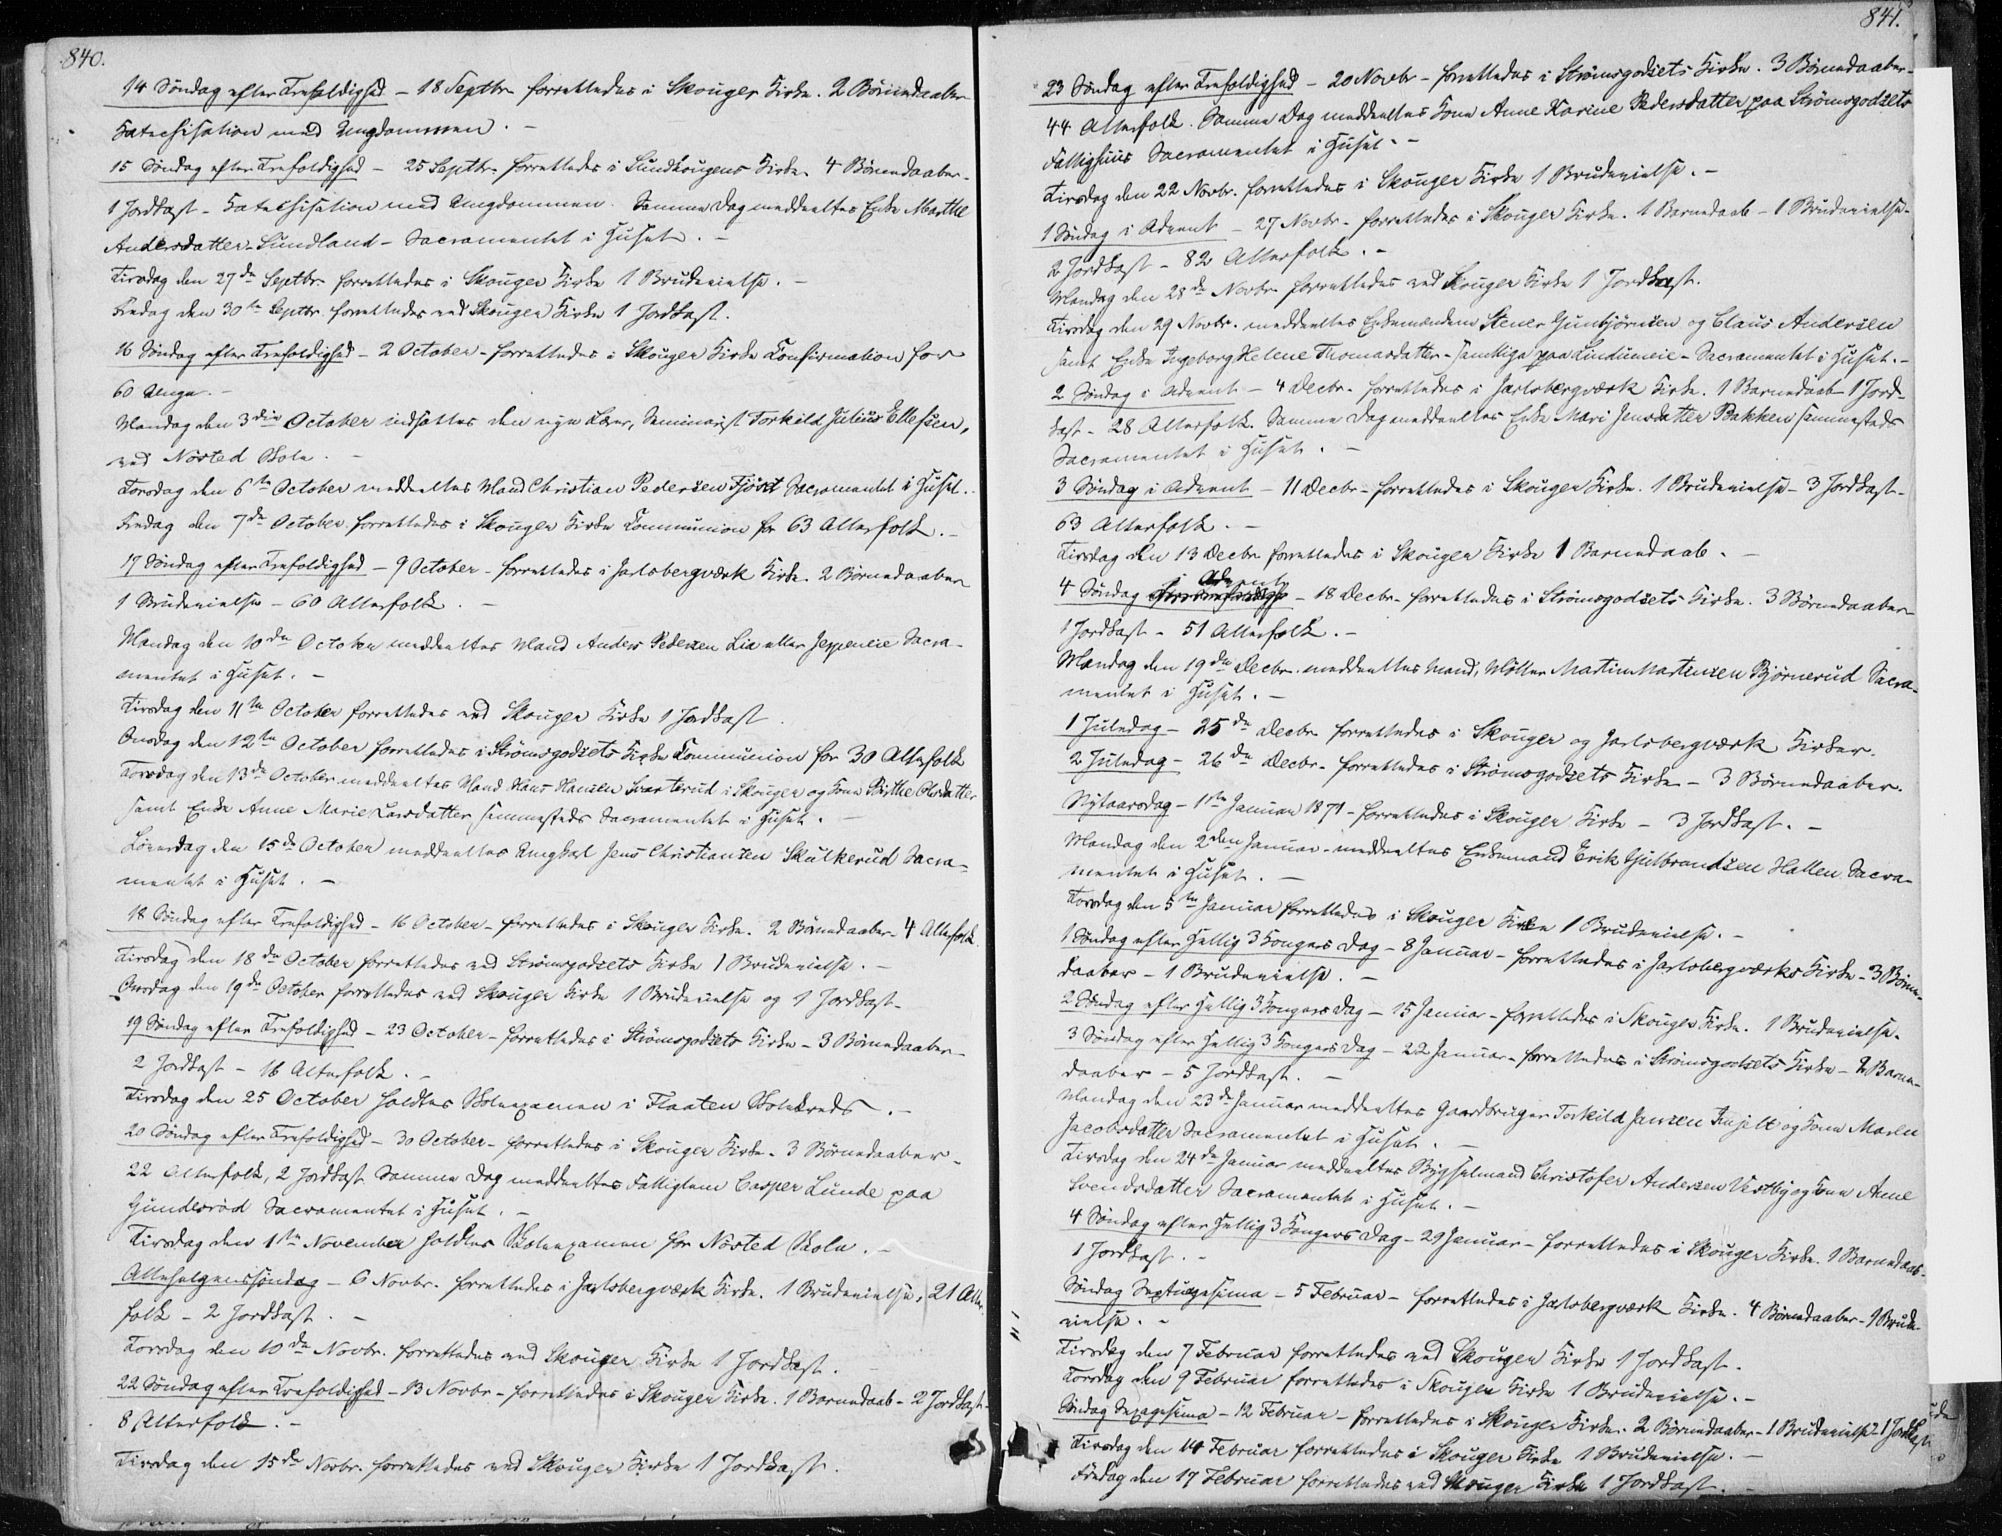 840.
14 Søndag efter Trefoldighed – 18 Septbr. forrettedes i Skouger Kirke. 2 Børnedaaber
Katechisation med Ungdommen. –
15 Søndag efter Trefoldighed – 25 Septbr. forrettedes i Kirke. 4 Børnedaaber.
1 Jordkast – Katechisation med Ungdommen. Samme Dag meddeeltes Enke Marthe
Andersdatter Sundland – Sacramentet i Huset. –
Tirsdag den 27de Septbr. forrettedes i Skouger Kirke 1 Brudevielse. –
Fredag den 30te Septbr. forrettedes ved Skouger Kirke 1 Jordkast.
16 Søndag efter Trefoldighed – 2 October – forrettedes i Skouger Kirke Confirmation for
60 Unge. –
Mandag den 3die October indsattes den nye Lærer, Seminarist Torkild Julius Ellefsen,
ved Nøsted Skole. –
Torsdag den 6te October meddeeltes Mand Christian Pedersen Sacramentet i Huset. –
Fredag den 7de October forrettedes i Skouger Kirke Communion for 63 Alterfolk. –
17 Søndag efter Trefoldighed – 9 October – forrettedes i Jarlsbergværk Kirke. 2 Børnedaaber
1 Brudevielse – 60 Alterfolk. –
Mandag den 10de October meddeeltes Mand Anders Pedersen Lia eller Jeppeneie Sacra-
mentet i Huset. –
Tirsdag den 11te October forrettedes ved Skouger Kirke 1 Jordkast.
Onsdag den 12te October forrettedes i Strømsgodsets Kirke Communion for 30 Alterfolk
Torsdag den 13de October meddeeltes Mand Hans Hansen Svarterud i Skouger og Kone Birthe Olsdatter
samt Enke Anne Marie Larsdatter sammesteds Sacramentet i Huset. –
Løverdag den 15de October meddeeltes Ungkarl Jens Christiansen Skulkerud Sacra-
mentet i Huset. –
18 Søndag efter Trefoldighed – 16 October – forrettedes i Skouger Kirke. 2 Børnedaaber – 4 Alterfolk
Tirsdag den 18de October forrettedes ved Strømsgodsets Kirke 1 Brudevielse. –
Onsdag den 19de October forrettedes ved Skouger Kirke 1 Brudevielse og 1 Jordkast –
19 Søndag efter Trefoldighed – 23 October – forrettedes i Strømsgodsets Kirke – 3 Børnedaaber –
2 Jordkast – 16 Alterfolk. –
Tirsdag den 25 October holdtes Skoleexamen i Flaaten Skolekreds. –
20 Søndag efter Trefoldighed – 30 October – forrettedes i Skouger Kirke – 3 Børnedaaber –
22 Alterfolk, 2 Jordkast. Samme Dag meddeeltes Fattiglem Casper Lunde paa
Gunderød Sacramentet i Huset. –
Tirsdag den 1ste November holdtes Skoleexamen for Nøsted Skole. –
Allehelgenssøndag – 6 Novbr. forrettedes i Jarlsbergværk Kirke. 1 Brudevielse. 21 Alter-
folk – 2 Jordkast. –
Torsdag den 10de Novbr. forrettedes ved Skouger Kirke 1 Jordkast.
22 Søndag efter Trefoldighed – 13 Novbr – forrettedes i Skouger Kirke. 1 Barnedaab – 2 Jordkast –
8 Alterfolk. –
Tirsdag den 15de Novbr. forrettedes ved Skouger Kirke 1 Jordkast.
841.
23 Søndag efter Trefoldighed – 20 Novbr – forrettedes i Strømsgodsets Kirke. 3 Børnedaaber –
44 Alterfolk. Samme Dag meddeeltes Kone Anne Karine Pedersdatter paa Strømsgodsets
Fattighuus Sacramentet i Huset. –
Tirsdag den 22 Novbr. forrettedes i Skouger Kirke 1 Brudevielse. –
1 Søndag i Advent – 27 Novbr – forrettedes i Skouger Kirke. 1 Barnedaab – 1 Brudevielse –
2 Jordkast – 82 Alterfolk. –
Mandag den 28de Novbr forrettedes ved Skouger Kirke 1 Jordkast.
Tirsdag den 29 Novbr. meddeeltes Enkemændene Stener Gunbjørnsen og Claus Andersen
samt Enke Ingeborg Helene Thomasdatter – samtlige paa Lindumeie – Sacramentet i Huset. –
2 Søndag i Advent – 4 Decbr – forrettedes i Jarlsbergværk Kirke. 1 Barnedaab – 1 Jord-
kast – 28 Alterfolk. Samme Dag meddeeltes Enke Mari Jensdatter Bakken sammesteds
Sacramentet i Huset. –
3 Søndag i Advent – 11 Decbr – forrettedes i Skouger Kirke. 1 Brudevielse – 3 Jordkast –
63 Alterfolk. –
Tirsdag den 13 Decbr forrettedes i Skouger Kirke 1 Barnedaab. –
4 Søndag i Advent – 18 Decbr – forrettedes i Strømsgodsets Kirke. 3 Børnedaaber
1 Jordkast – 51 Alterfolk. –
Mandag den 19de Decbr. meddeeltes Mand, Møller Martin Martinsen Bjørnerud Sacra-
mentet i Huset. –
1 Juledag – 25de Decbr forrettedes i Skouger og Jarlsbergværk Kirker.
2 Juledag – 26de Decbr – forrettedes i Strømsgodsets Kirke – 3 Børnedaaber.
Nytaarsdag – 1ste Januar 1871 – forrettedes i Skouger Kirke – 3 Jordkast. –
Mandag den 2den Januar – meddeeltes Enkemand Erik Gulbrandsen Hallen Sacra-
mentet i Huset. –
Torsdag den 5te Januar forrettedes i Skouger Kirke 1 Brudevielse. –
1 Søndag efter Hellig 3 Kongers Dag – 8 Januar – forrettedes i Jarlsbergværks Kirke – 3 Børne-
daaber – 1 Brudevielse. –
2 Søndag efter Hellig 3 Kongers Dag – 15 Januar – forrettedes i Skouger Kirke. 1 Brudevielse.
3 Søndag efter Hellig 3 Kongers Dag – 22 Januar – forrettedes i Strømsgodsets Kirke – 2 Barne-
daaber – 5 Jordkast. –
Mandag den 23de Januar meddeeltes Gaardbruger Torkild Jansen og Kone Maren
Jacobsdatter Sacramentet i Huset. –
Tirsdag den 24de Januar meddeeltes Bygselmand Christofer Andersen Vestby og Kone Anne
Svendsdatter Sacramentet i Huset. –
4 Søndag efter Hellig 3 Kongers Dag – 29 Januar – forrettedes i Skouger Kirke. 1 Barnedaab –
1 Jordkast. –
Søndag Septuagesima – 5 Februar – forrettedes i Jarlsbergværk Kirke. 4 Børnedaaber – 1 Brude-
vielse. –
Tirsdag den 7 Februar forrettedes ved Skouger Kirke 1 Jordkast.
Torsdag den 9 Februar forrettedes i Skouger Kirke 1 Brudevielse. –
Søndag Sexagesima – 12 Februar – forrettedes i Skouger Kirke. 2 Børnedaaber – 1 Brudevielse – 1 Jordkast
Tirsdag den 14 Februar forrettedes i Skouger Kirke 1 Brudevielse. –
Fredag den 17 Februar forrettedes ved Skouger Kirke 1 Jordkast. –